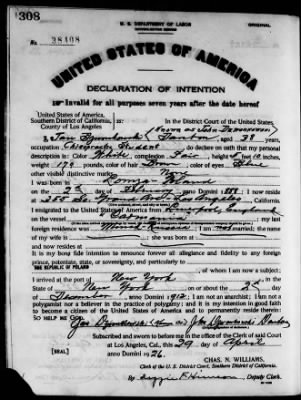 308
U. S. DEPARTMENT OF LABOR
NATURALIZATION SERVICE
ORIGINAL
No. 38408
UNITED STATES OF AMERICA
DECLARATION OF INTENTION
Invalid for all purposes seven years after the date hereof
United States of America,
Southern District of California,
County of Los Angeles
ss:
In the District Court of the United States.
I, Jan
aged 38 years,
occupation Chiropractic Student, do declare on oath that my personal
description is: Color White, complexion Fair, height 5 feet 10 inches,
weight 179 pounds, color of hair, color of eyes Blue
other visible distinctive marks
I was born in
on the 2nd day of February, anno Domini 1888; I now reside
at 255 So. Los Angeles, California.
I emigrated to the United States of America from Liverpool, England
on the vessel; my last
foreign residence was Minsk-Russia; I am not married; the name
of my wife is; she was born at
and now resides at
It is my bona fide intention to renounce forever all allegiance and fidelity to any foreign
prince, potentate, state, or sovereignty, and particularly to
THE REPUBLIC OF POLAND, of whom I am now a subject;
I arrived at the port of New York, in the
State of New York, on or about the 2nd day
of December, anno Domini 1912; I am not an anarchist; I am not a
polygamist nor a believer in the practice of polygamy; and it is my intention in good faith
to become a citizen of the United States of America and to permanently reside therein:
SO HELP ME GOD.
Subscribed and sworn to before me in the office of the Clerk of said Court
at Los Angeles, Cal., this 29 day of April
anno Domini 1926.
[SEAL]
CHAS. N. WILLIAMS,
Clerk of the U. S. District Court, Southern District of California.
By, Deputy Clerk.